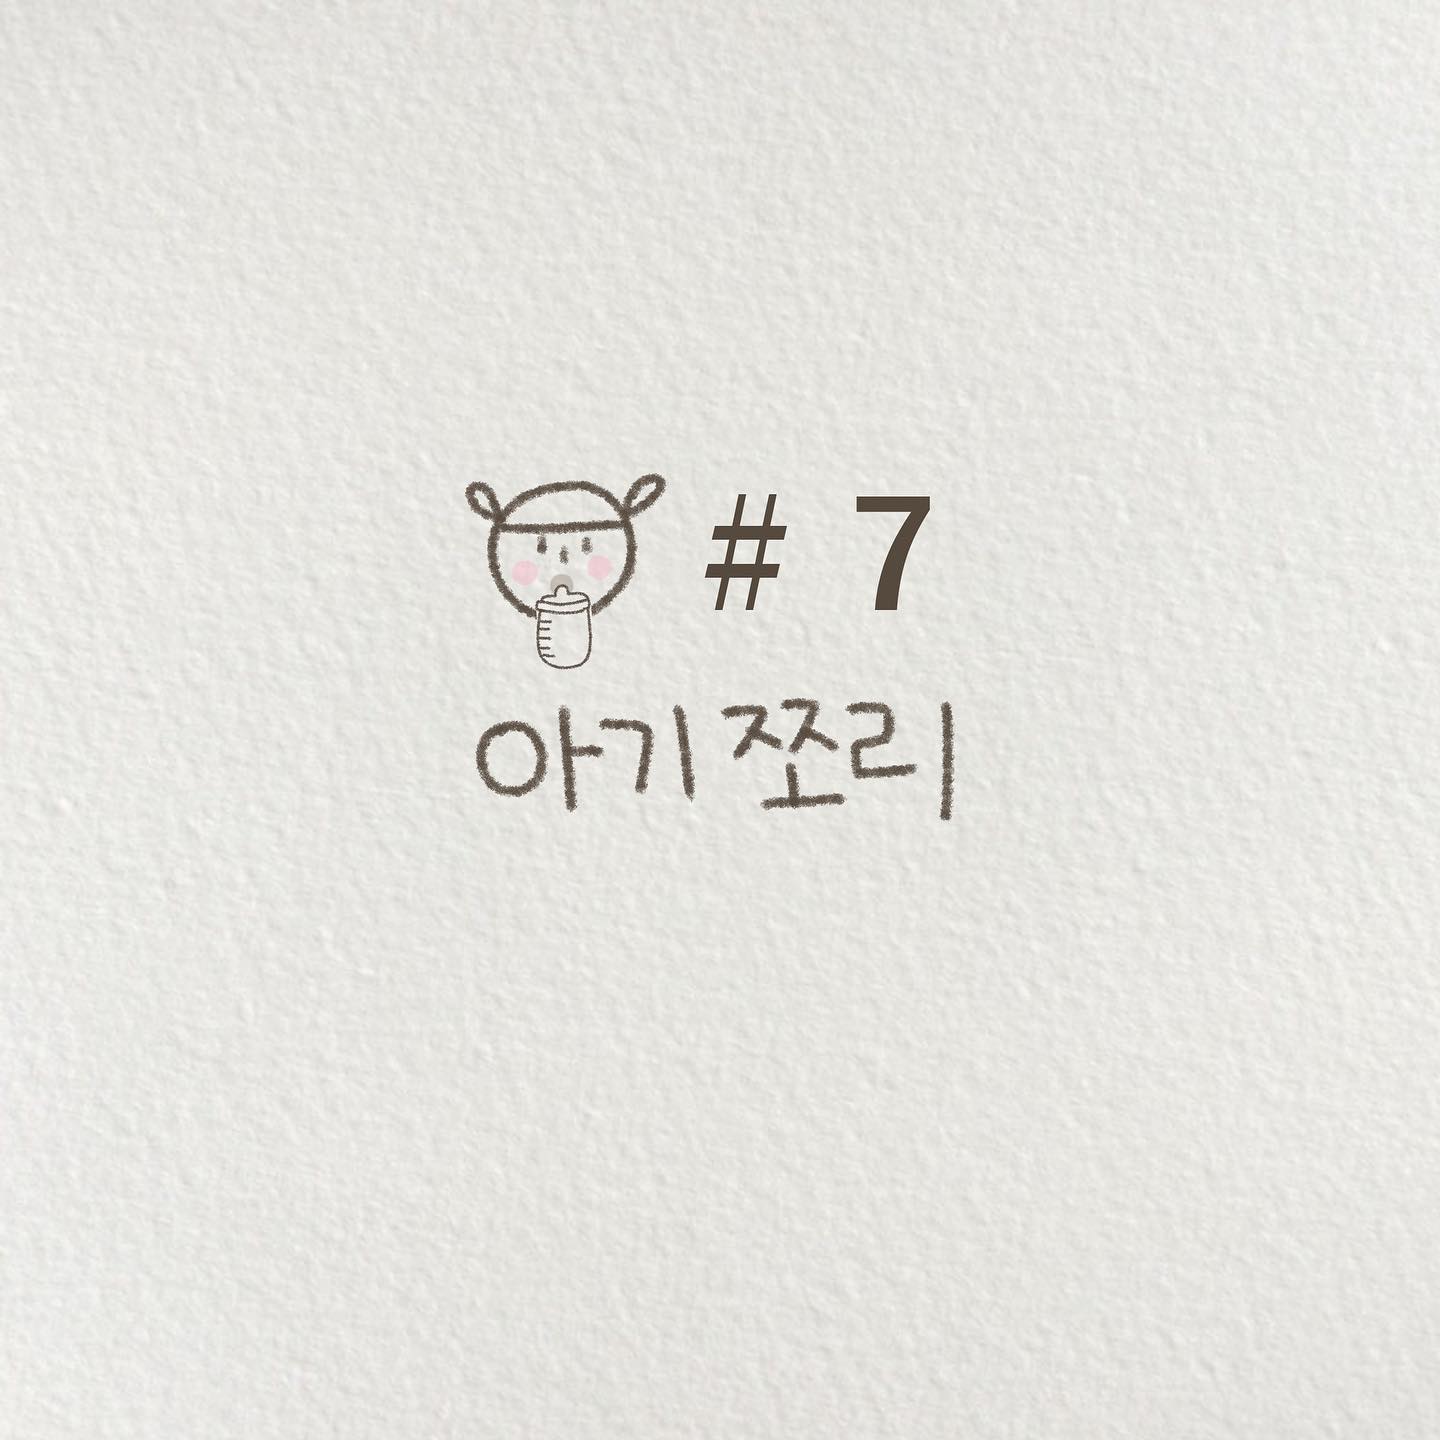 # 7
아기 쪼리